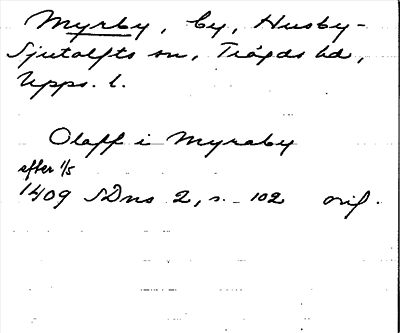 Myrby, by, Husby-
Sjutolfts sn, Trögds hd,
Upps. l.
Olaff i Myraby
efter 1/5
1409 SDns 2, s. 102 orig.